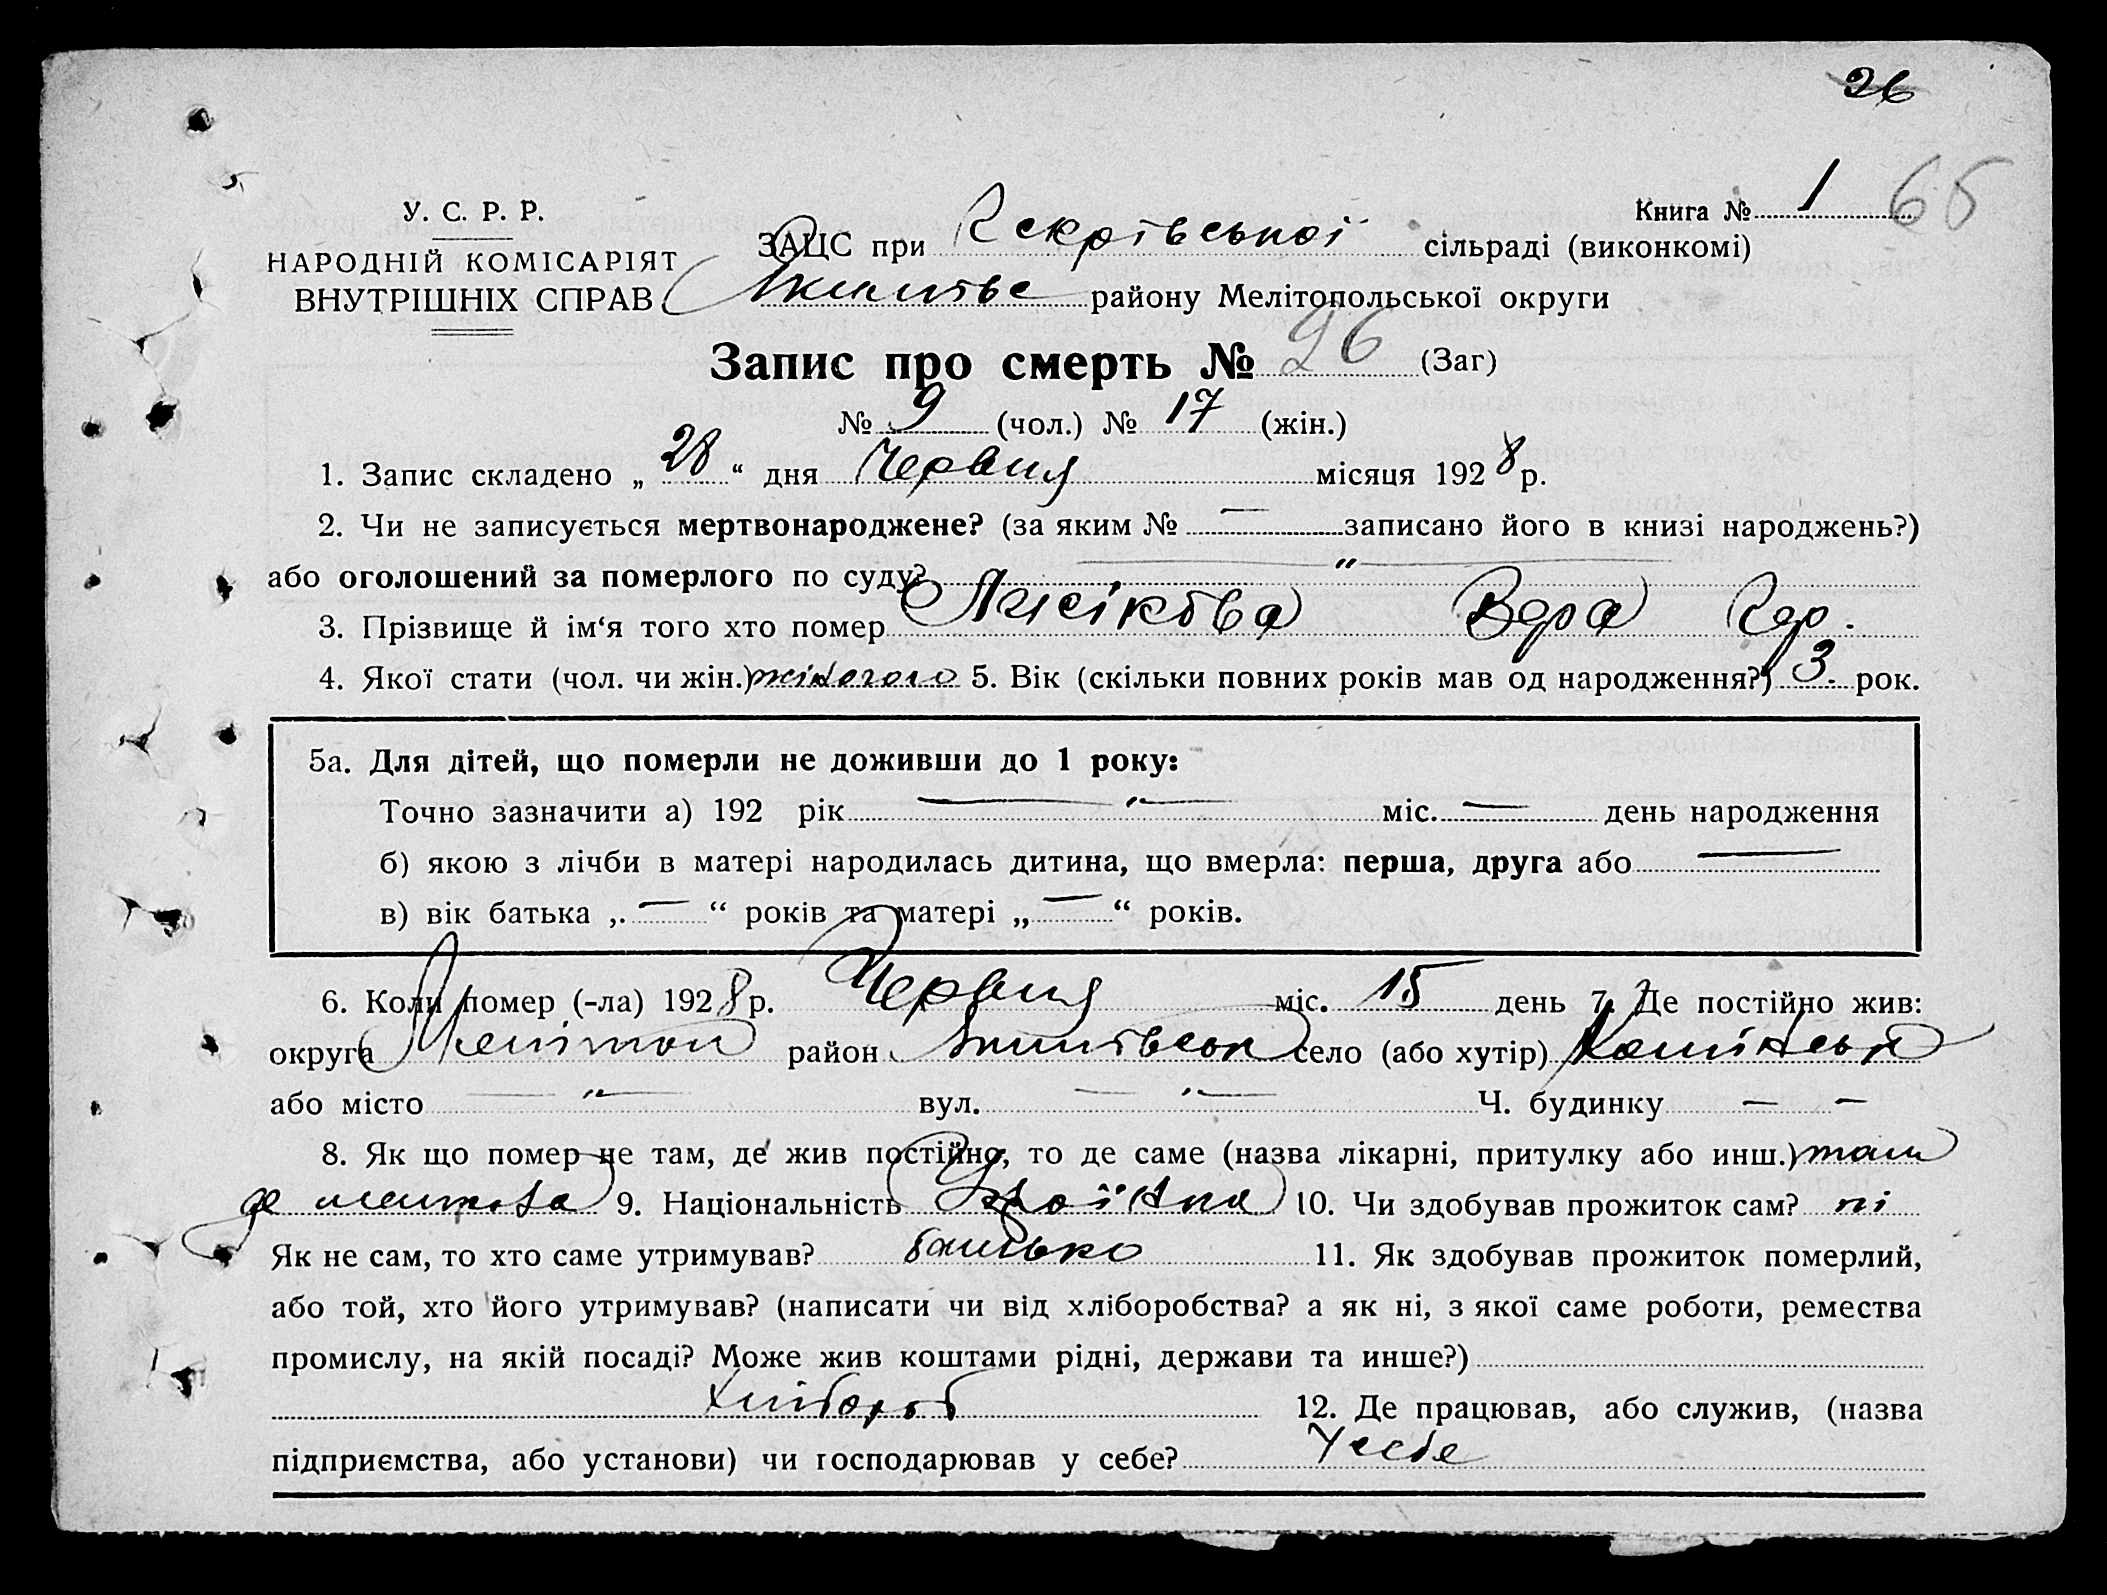 26
У. С. Р. Р.
НАРОДНІЙ КОМІСАРІЯТ
ВНУТРІШНІХ СПРАВ
Книга № 1 66
ЗАЦС при сільраді (виконкомі)
району Мелітопольської округи
Запис про смерть № 26 (Заг)
№ 9 (чол.) № 17 (жін.)
1. Запис складено „ 28 “ дня Червня місяця 1928 р.
2. Чи не записується мертвонароджене? (за яким № — записано його в книзі народжень?)
або оголошений за померлого по суду? — " —
3. Прізвище й ім‘я того хто помер Вера Гер.
4. Якої стати (чол. чи жін.) жіночого 5. Вік (скільки повних років мав од народження?) 3. рок.
5а. Для дітей, що померли не доживши до 1 року:
Точно зазначити а) 192 рік — " — міс. — день народження
б) якою з лічби в матері народилась дитина, що вмерла: перша, друга або —
в) вік батька „ — “ років та матері „ — “ років.
6. Коли помер (-ла) 1928 р. Червня міс. 15 день 7. Де постійно жив:
округа Мелітоп район село (або хутір)
або місто — " — вул. — " — Ч. будинку — —
8. Як що помер не там, де жив постійно, то де саме (назва лікарні, притулку або инш.) там
де 9. Національність Українка 10. Чи здобував прожиток сам? ні
Як не сам, то хто саме утримував? батько 11. Як здобував прожиток померлий,
або той, хто його утримував? (написати чи від хліборобства? а як ні, з якої саме роботи, ремества
промислу, на якій посаді? Може жив коштами рідні, держави та инше?)
Хлібороб 12. Де працював, або служив, (назва
підприємства, або установи) чи господарював у себе? У себе